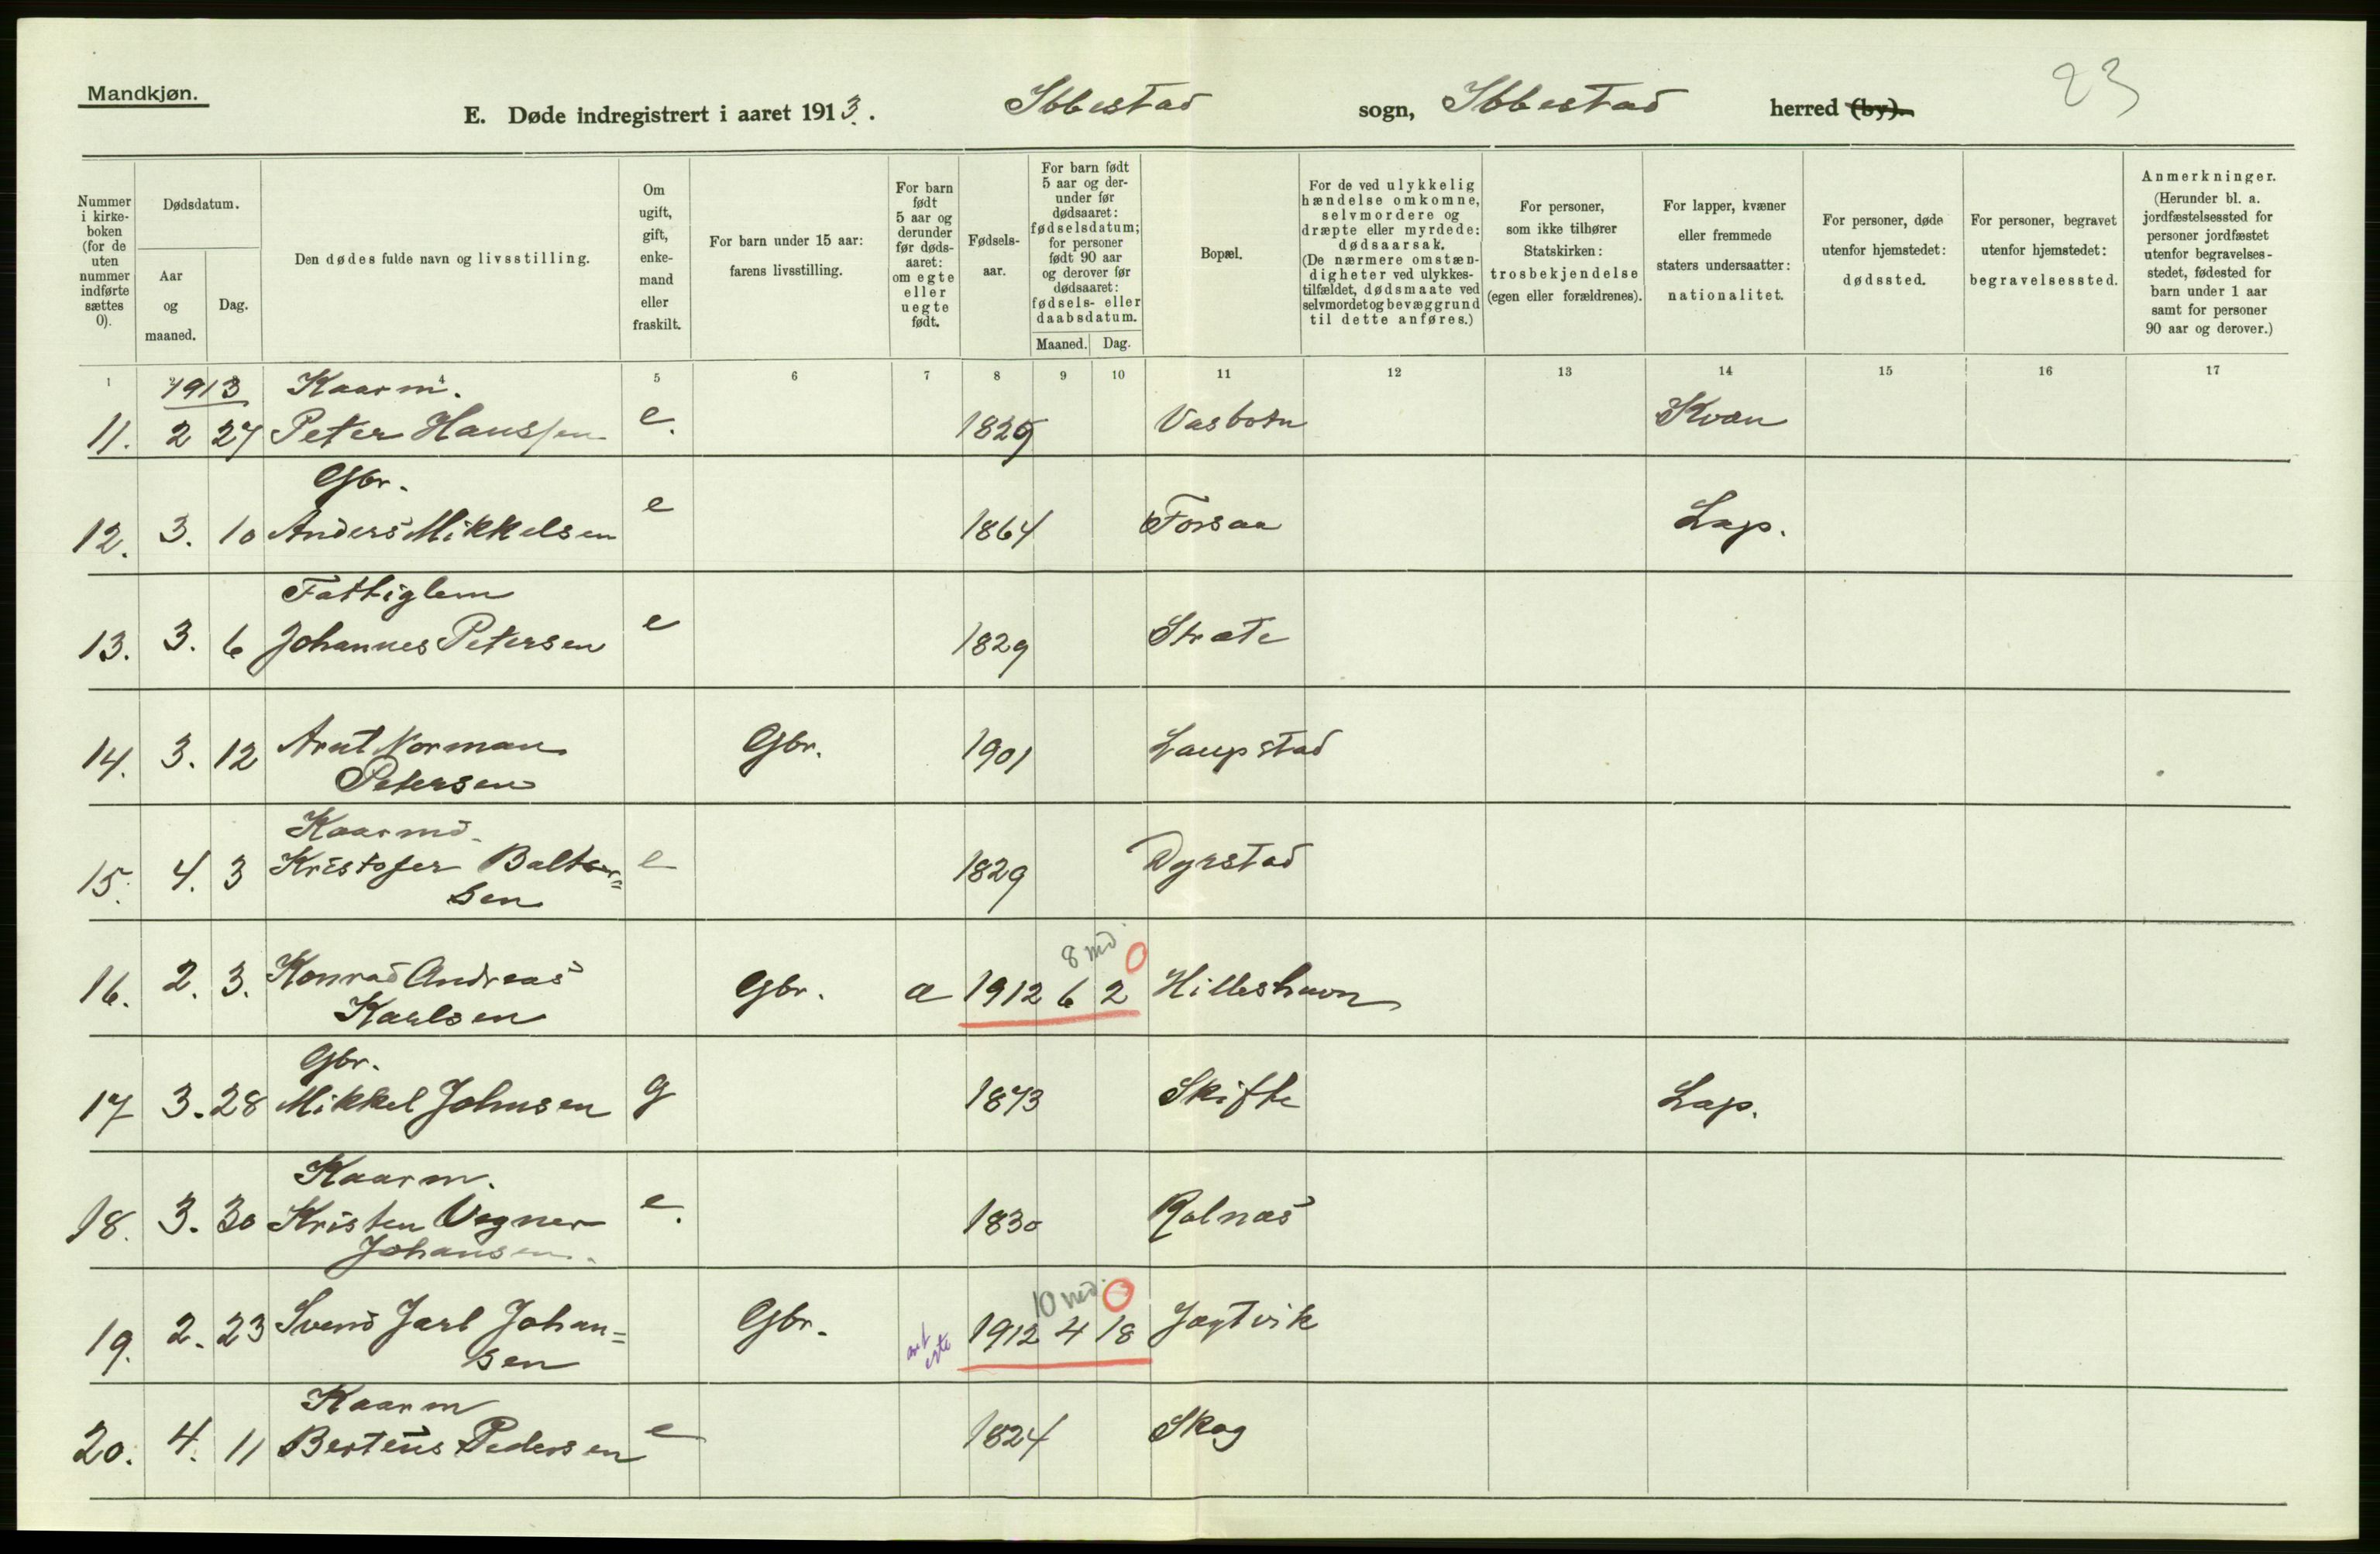 Mandkjøn.
23
E. Døde indregistrert i aaret 1913. Ibbestad sogn, Ibbestad herred (by).
Nummer i kirke-boken (for de uten nummer indførte sættes 0).
Dødsdatum.
Aar og maaned.
Dag.
Den dødes fulde navn og livsstilling.
Om ugift, gift, enke-mand eller fraskilt.
For barn under 15 aar: farens livsstilling.
For barn født 5 aar og derunder før døds-aaret: om egte eller uegte født.
Fødsels-aar.
For barn født 5 aar og der-under før dødsaaret: fødselsdatum; for personer født 90 aar og derover før dødsaaret: fødsels- eller daabsdatum.
Maaned. Dag.
Bopæl.
For de ved ulykkelig hændelse omkomne, selvmordere og dræpte eller myrdede: dødsaarsak. (De nærmere omstæn-digheter ved ulykkes-tilfældet, dødsmaate ved selvmordet og bevæggrund til dette anføres.)
For personer, som ikke tilhører Statskirken: trosbekjendelse (egen eller forældrenes).
For lapper, kvæner eller fremmede staters undersaatter: nationalitet.
For personer, døde utenfor hjemstedet: dødssted.
For personer, begravet utenfor hjemstedet: begravelsessted.
Anmerkninger. (Herunder bl. a. jordfæstelsessted for personer jordfæstet utenfor begravelses-stedet, fødested for barn under 1 aar samt for personer 90 aar og derover.)
1 4 5 6 7 8 9 10 11 12 13 14 15 16 17
1913 Kaarm.
11. 2 27 Peter Hanssen e. 1829 Vasbotn Kvæn
Gbr.
12. 3. 10 Anders Mikkelsen e 1864 Forsaa Lap.
Fattiglem
13. 3. 6 Johannes Petersen e 1829 Stræte
14. 3. 12 Arnt Norman Gbr. 1901 Laupstad
Petersen
Kaarmd.
15. 4. 3 Kristofer Balter= e 1829 Dyrstad
sen
8 md. 0
16. 2. 3. Konrad Andreas Gbr. a 1912 6 2 Hilleshavn
Karlsen
Gbr.
17 3. 28 Mikkel Johnsen g 1873 Skifte Lap.
Kaarm.
18. 3. 30 Kristen Vegner e. 1830 Rolnæs
Johansen.
10 md. 0
19. 2. 23 Svend Jarl Johan= Gbr. egte 1912 4 18 Jagtvik
sen
Kaarm
20. 4. 11 Berteus Pedersen e 1824 Skog